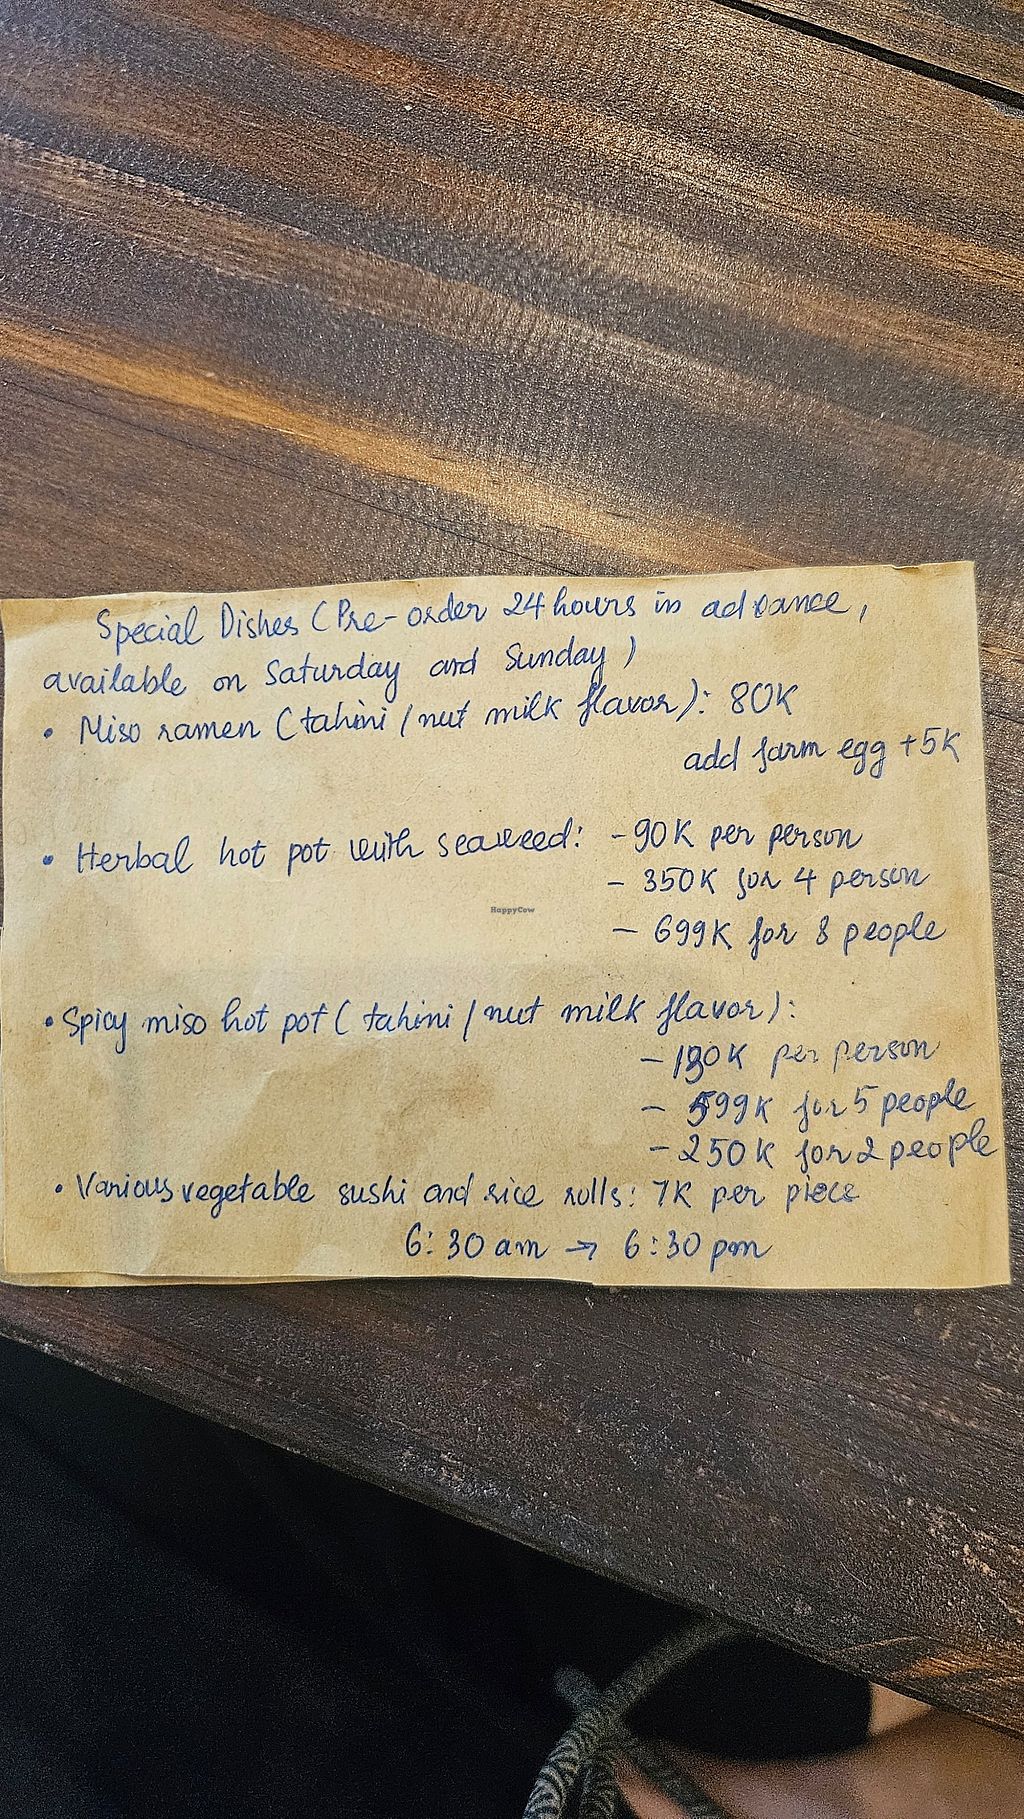 Special Dishes (Pre-order 24 hours in advance,
available on Saturday and Sunday)
• Miso ramen (tahini / nut milk flavor): 80K
add farm egg +5K
• Herbal hot pot with seaweed: - 90K per person
- 350K for 4 person
- 699K for 8 people
HappyCow
• Spicy miso hot pot (tahini / nut milk flavor):
- 130K per person
- 599K for 5 people
- 250K for 2 people
• Various vegetable sushi and rice rolls: 7K per piece
6:30 am → 6:30 pm